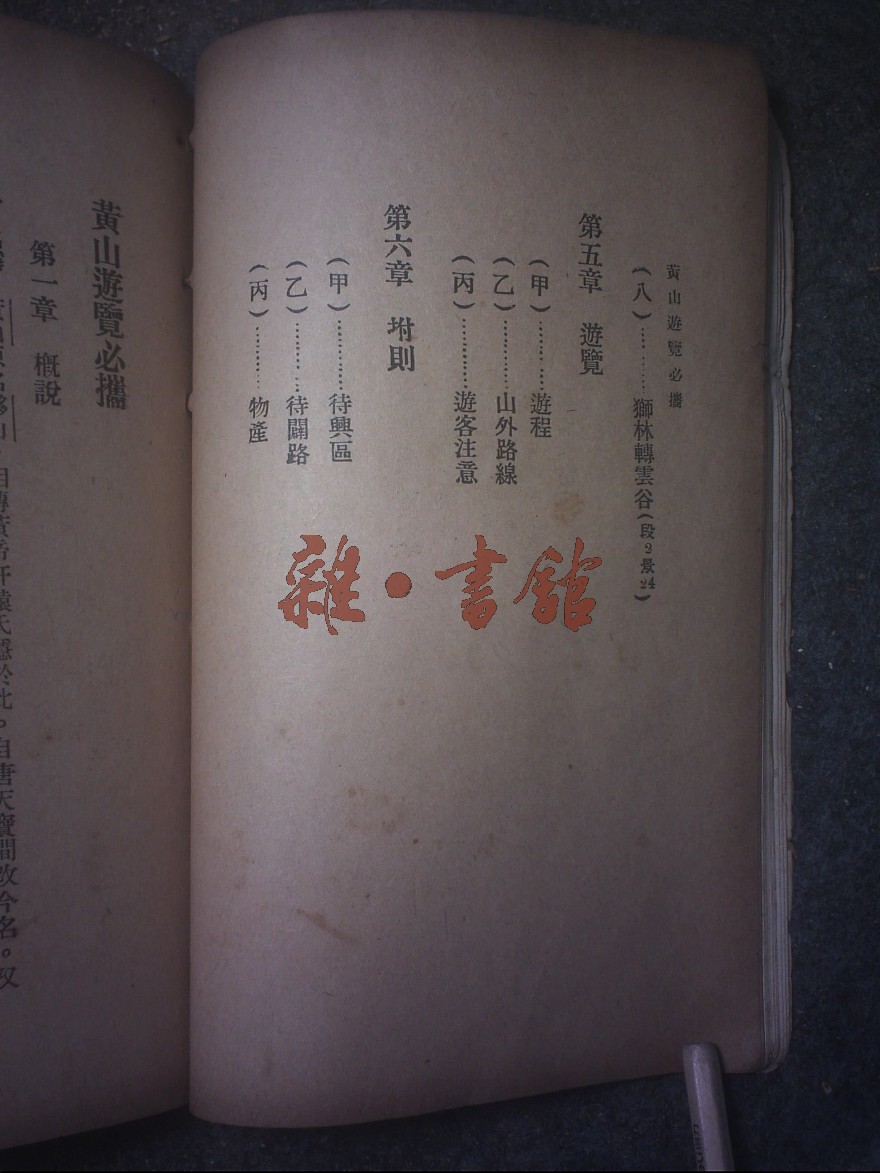 黃山遊覽必攜
(八)…………獅林轉雲谷(段2景24)
第五章 遊覽
(甲)…………遊程
(乙)…………山外路線
(丙)…………遊客注意
第六章 坿則
(甲)…………待興區
(乙)…………待闢路
(丙)…………物產
雜·書館
黃山遊覽必攜
第一章 概說
相傳黃帝軒轅氏隱於此。自唐天寶間改今名。又